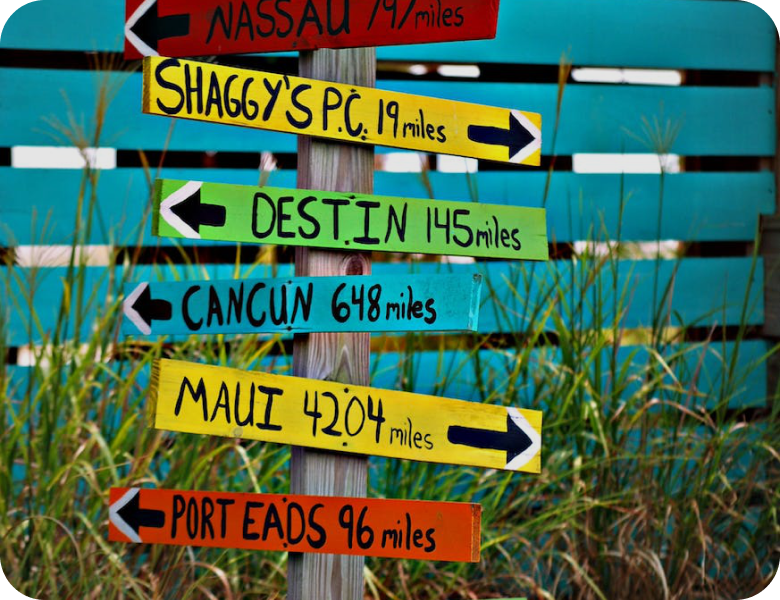 NASSAU 797 miles
SHAGGY'S P.C. 19 miles
DESTIN 145 miles
CANCUN 648 miles
MAUI 4204 miles
PORT EADS 96 miles